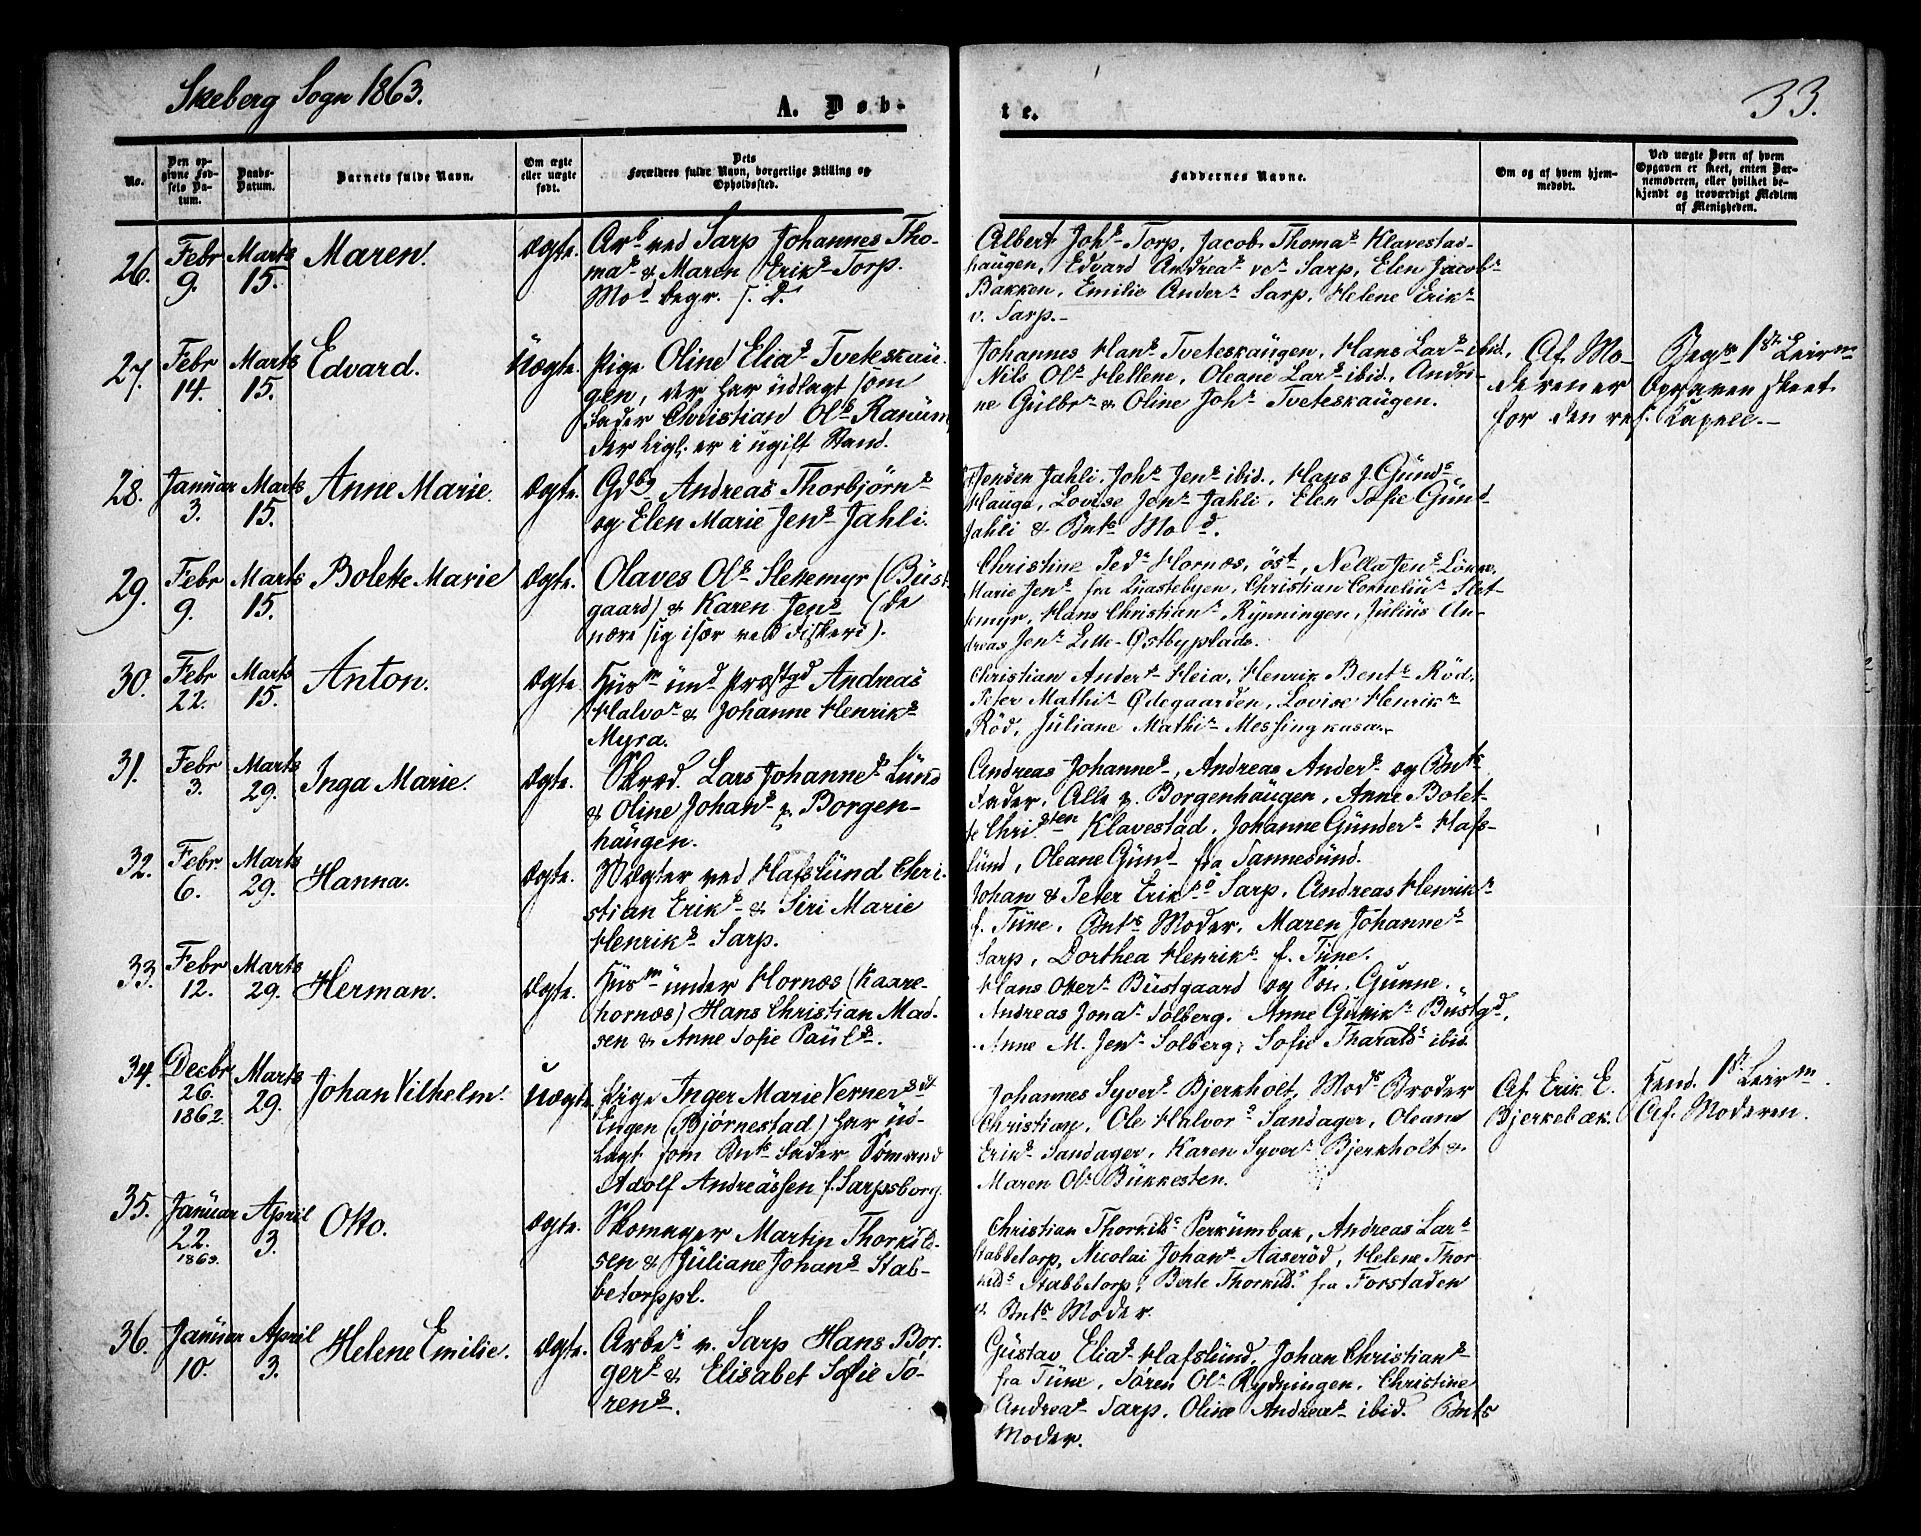 Skeberg Sogn 1863.
A. Døb-
te.
33.
No.
Den op-
givne Fød-
sels Da-
tum.
Daabs-
Datum.
Barnets fulde Navn.
Om ægte
eller uægte
født.
Dets
Forældres fulde Navn, borgerlige Stilling og
Opholdssted.
Faddernes Navne.
Om og af hvem hjem-
medøbt.
Ved uægte Børn af hvem
Opgaven er skeet, enten Bar-
nemoderen, eller hvilket be-
kjendt og troværdigt Medlem
af Menigheden.
26.
Febr
9.
Marts
15.
Maren.
Ægte.
Arb. ved Sarp Johannes Tho-
mas & Maren Eriks Torp.
Albert Johs Torp, Jacob Thomas Klavestad-
haugen, Edvard Andreas ve Sarp, Elen Jacobs
Bakken, Emilie Anders Sarp, Helene Eriks
v. Sarp.-
27.
Febr
14.
Marts
15.
Edvard.
Uægte.
Pige Oline Elias Tveteskau-
gen, der har udlagt som
Fader Christian Ols Ranum
der ligl. er i ugift Stand.
Johannes Hans Tveteskaugen, Hans Lars ibid,
Nils Ols Hellene, Oleane Lars ibid., Andri-
ne Gulbr & Oline Johs Tveteskaugen.
Af Mo-
deren er
for den ref.
Begs 1ste Leirm
Opgaven skeet.
Kapell.-
28.
Januar
3.
Marts
15.
Anne Marie.
Ægte.
Gdbg Andreas Thorbjørns
og Elen Marie Jens Jahli.
Jensen Jahli, Johs Jens ibid., Hans J. Gunds
Hauge, Lovise Jens Jahli, Elen Sofie Gund
Jahli & Bnts Mod.
29.
Febr
9.
Marts
15.
Bolette Marie
Ægte.
Olaves Ols Slettemyr (Bust
gaard) & Karen Jens (de
nære sig især ved Fiskeri).
Christine Peds Hornæs, øst, Nella Jens
Marie Jens fra Christian Cornelius Slet-
temyr, Hans Christians Rynningen, Julius An-
dreas Jens Lille-Østbyplads.
30.
Febr
22.
Marts
15.
Anton.
Ægte
Husm und Præstgd Andreas
Halvos & Johanne Henriks
Myra.
Christian Anders Heia, Henrik Bents Rød,
Peter Mathis Ødegaarden, Lovise Henriks
Rød, Juliane Mathis Messingkasa.
31.
Febr
3.
Marts
29.
Inga Marie.
Ægte.
Skræd. Lars Johannes Lund
& Oline Johans p. Borgen-
haugen.
Andreas Johannes, Andreas Anders og Bnts
Fader. Alle p. Borgenhaugen, Anne Bolet-
te Christen Klavestad, Johanne Gunders Hafs-
lund, Oleane Gund fra Sannesund.
32.
Febr
6.
Marts
29.
Hanna.
Ægte.
Vægter ved Hafslund Chri-
stian Eriks & Siri Marie
Henriks Sarp.
Johan & Peter Eriks Sarp, Andreas Henriks
f. Tune, Bnts Moder, Maren Johannes
Sarp, Dorthea Henriks f. Tune.
33.
Febr
12.
Marts
29.
Herman.
Ægte.
Husm under Hornæs (Kaare-
hornæs) Hans Christian Mad-
sen & Anne Sofie Pauls.
Hans Otters Bustgaard og Søn, Gunne,
Andreas Jonas Solberg, Anne Guniks Bustgd,
Anne M. Jens Solberg, Sofie Tharalds ibid
34.
Decbr
26.
1862.
Marts
29.
Johan Vilhelm.
Uægte
Pige Inger Marie Verners
Engen (Bjørnestad) har ud-
lagt som Bnts Fader Sømand
Adolf Andreassen f. Sarpsborg.
Johannes Syvers Bjerkholt, Mods Broder
Christian, Ole Halvors Sandager, Oleane
Eriks Sandager, Karen Syvers Bjerkholt &
Maren Ols Bukkesten.
Af Erik E.
Bjerkebæk.
1ste Leirm.
Af Moderen.
35.
Januar
22.
1863.
April
3.
Otto.
Ægte.
Skomager Martin Thorkild-
sen & Juliane Johans Stab-
betorppl.
Christian Thorkilds Perkumbak, Andreas Lars
Stabbetorp, Nicolai Johans Aaserød, Helene Thor-
kilds Stabbetorp, Berte Thorkilds fra Forstaden
& Bnts Moder.
36.
Januar
10.
April
3.
Helene Emilie.
Ægte.
Arbei v. Sarp Hans Bor-
gers & Elisabet Sofie Sø-
rens.
Gustav Elias Hafslund, Johan Christians
fra Tune, Søren Ols Rydningen, Christine
Andreas Sarp, Oline Andreas ibid. Bnts
Moder.